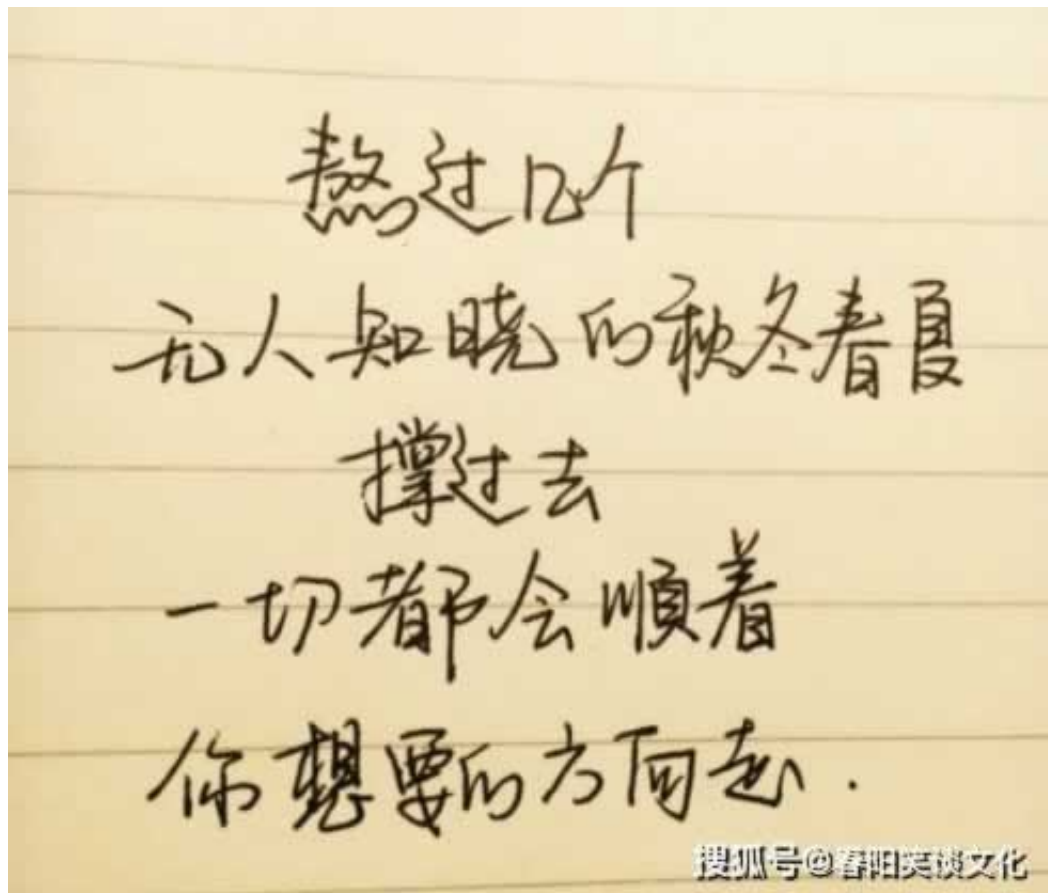 熬过几个
无人知晓的秋冬春夏
撑过去
一切都会順着
你想要的方向走.
搜狐号@春阳笑谈文化